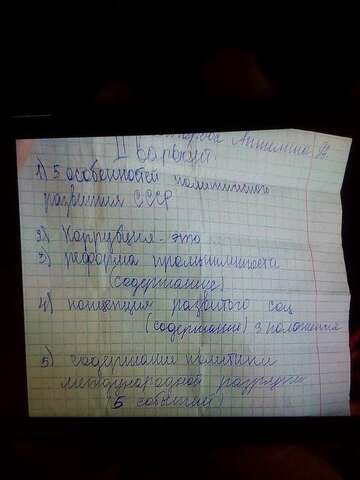 Ангелина
II вариант.
1) 5 особенностей политического
развития СССР
2) Коррупция - это
3) реформа промышленности
(содержание)
4) концепция развитого соц
(содержание) 3 положения
5) содержание политики
международной разрядки
(5 событий)